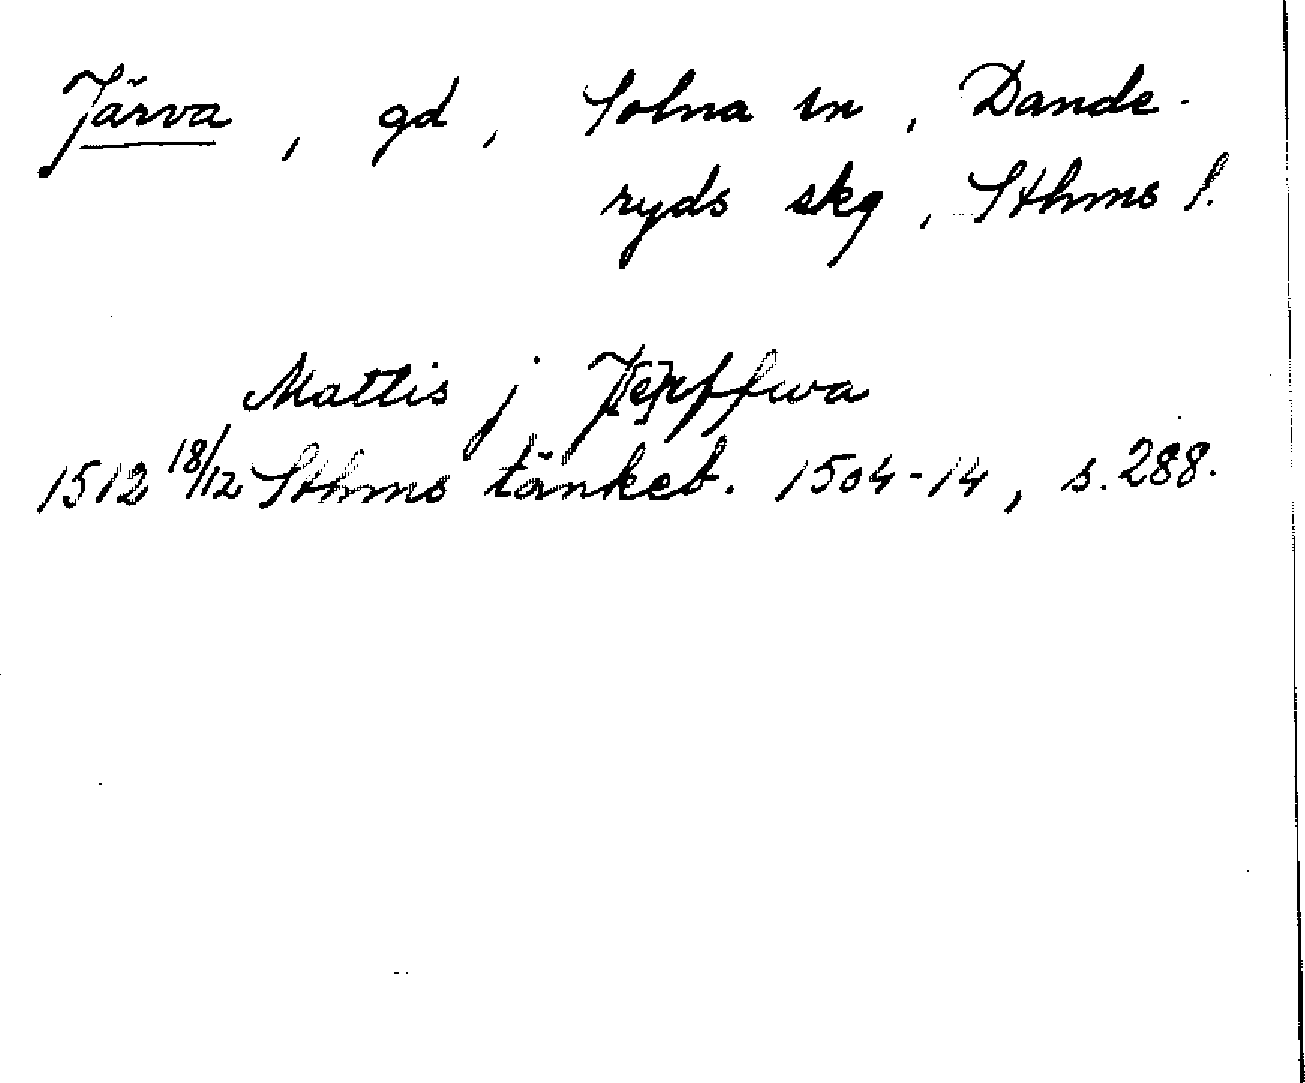 Järva, gd, Solna sn, Dande-
ryds skg, Sthms l.
Mattis j J[e]rffwa
1512 18/12 Sthms tänkeb. 1504-14, s. 288.